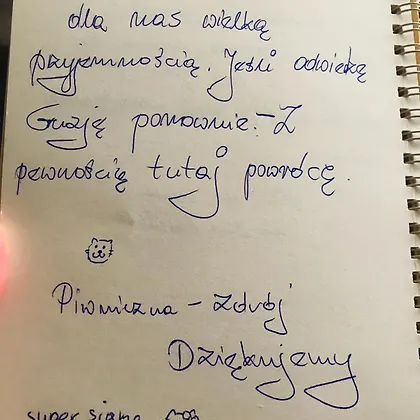 dla nas wielką
przyjemnością. Jeśli odwiedzą
ponownie. – Z
pewnością tutaj powrócę.
Piwniczna – Zdrój
Dziękujemy
super